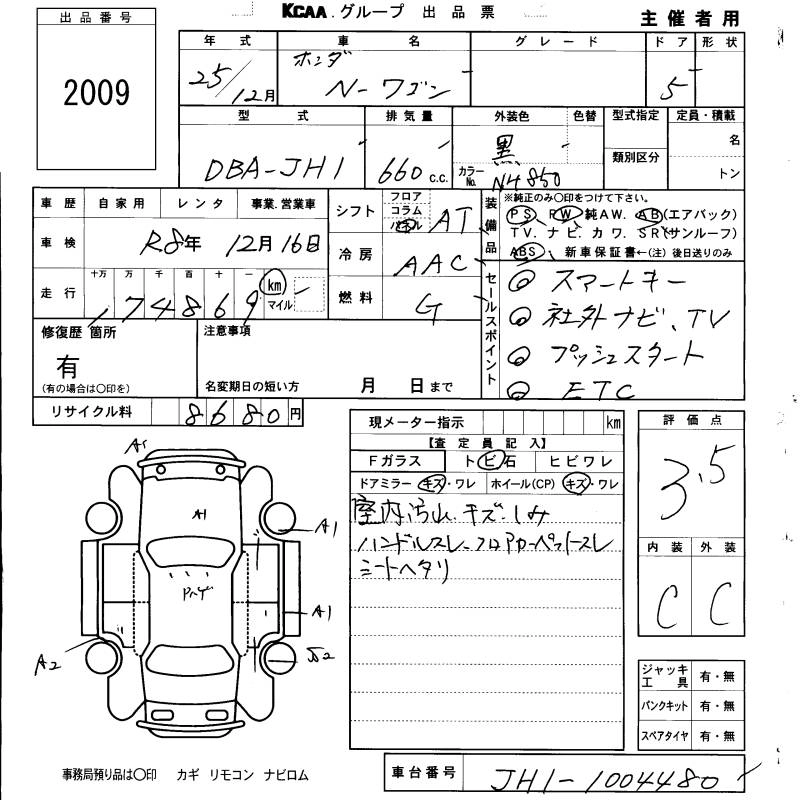 KCAA.グループ 出品票
主催者用
出品番号
2009
年式 車名 グレード ドア 形状
25/12月 ホンダ N-ワゴン 5
型式 排気量 外装色 色替 型式指定 定員・積載
DBA-JH1 660 c.c. 黒 カラーNo. NH850 類別区分 名 トン
車歴 自家用 レンタ 事業.営業車
車検 R8年 12月16日
走行 十万 万 千 百 十 一 km マイル
174869
シフト フロア コラム パネル AT
冷房 AAC
燃料 G
装備品 ※純正のみ○印をつけて下さい。
PS. PW 純AW. AB(エアバック)
TV. ナビ. カワ. SR(サンルーフ)
ABS. 新車保証書←(注)後日送りのみ
セールスポイント
スマートキー
社外ナビ、TV
プッシュスタート
ETC
修復歴 箇所 注意事項
有
(有の場合は○印を) 名変期日の短い方 月 日まで
リサイクル料 8680円
現メーター指示 km
【査定員記入】
Fガラス トビ石 ヒビワレ
ドアミラー キズ・ワレ ホイール(CP) キズ・ワレ
室内汚れ.キズ.しみ
ハンドルスレ-フロアカーペットスレ
シートヘタリ
評価点
3.5
内装 外装
C C
A1
A1
A1
A2
ジャッキ工具 有・無
パンクキット 有・無
スペアタイヤ 有・無
事務局預り品は○印 カギ リモコン ナビロム
車台番号 JH1-1004480